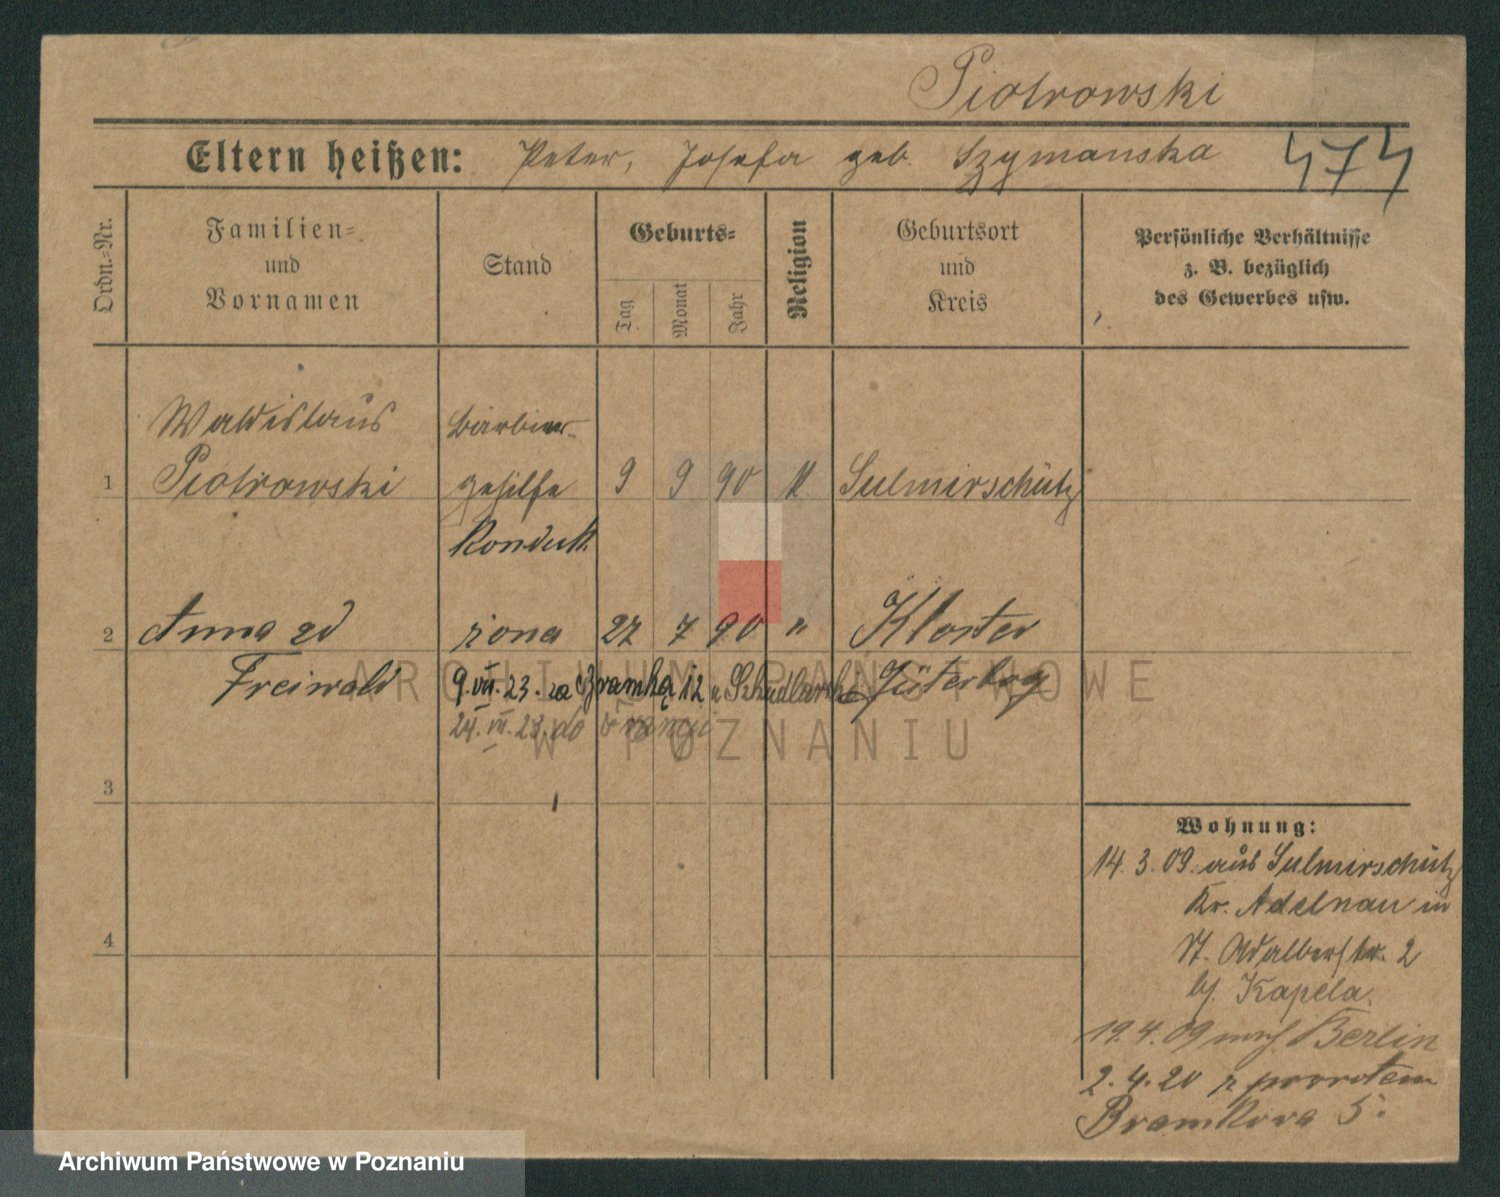 Piotrowski
Eltern heißen: Peter, Josefa geb. Szymanska
474
Ordn.-Nr.
Familien-
und
Vornamen
Stand
Geburts-
Tag
Monat
Jahr
Religion
Geburtsort
und
Kreis
Persönliche Verhältnisse
z. B. bezüglich
des Gewerbes usw.
Wladislaus
Barbier-
1 Piotrowski gehilfe 9 9 90 k Sulmirschütz
Kondukt.
2 Anna zd żona 27 7 90 " Kloster
Freiwald
9.VII.23. za Bramką 12 u Szkudlarski Jüterbog
24.VII.23. do
3
4
Wohnung:
14.3.09. aus Sulmirschütz
Kr. Adelnau in
St. Adalbertstr. 2
b/ Kapela.
19.4.09 nach Berlin
2.4.20 z powrotem
Bramkowa 5.
ARCHIWUM PAŃSTWOWE
W POZNANIU
Archiwum Państwowe w Poznaniu